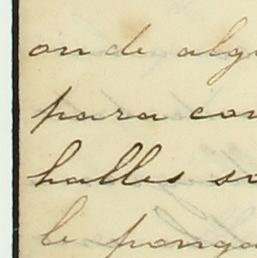 onde alg
para con
halles s
le ponga